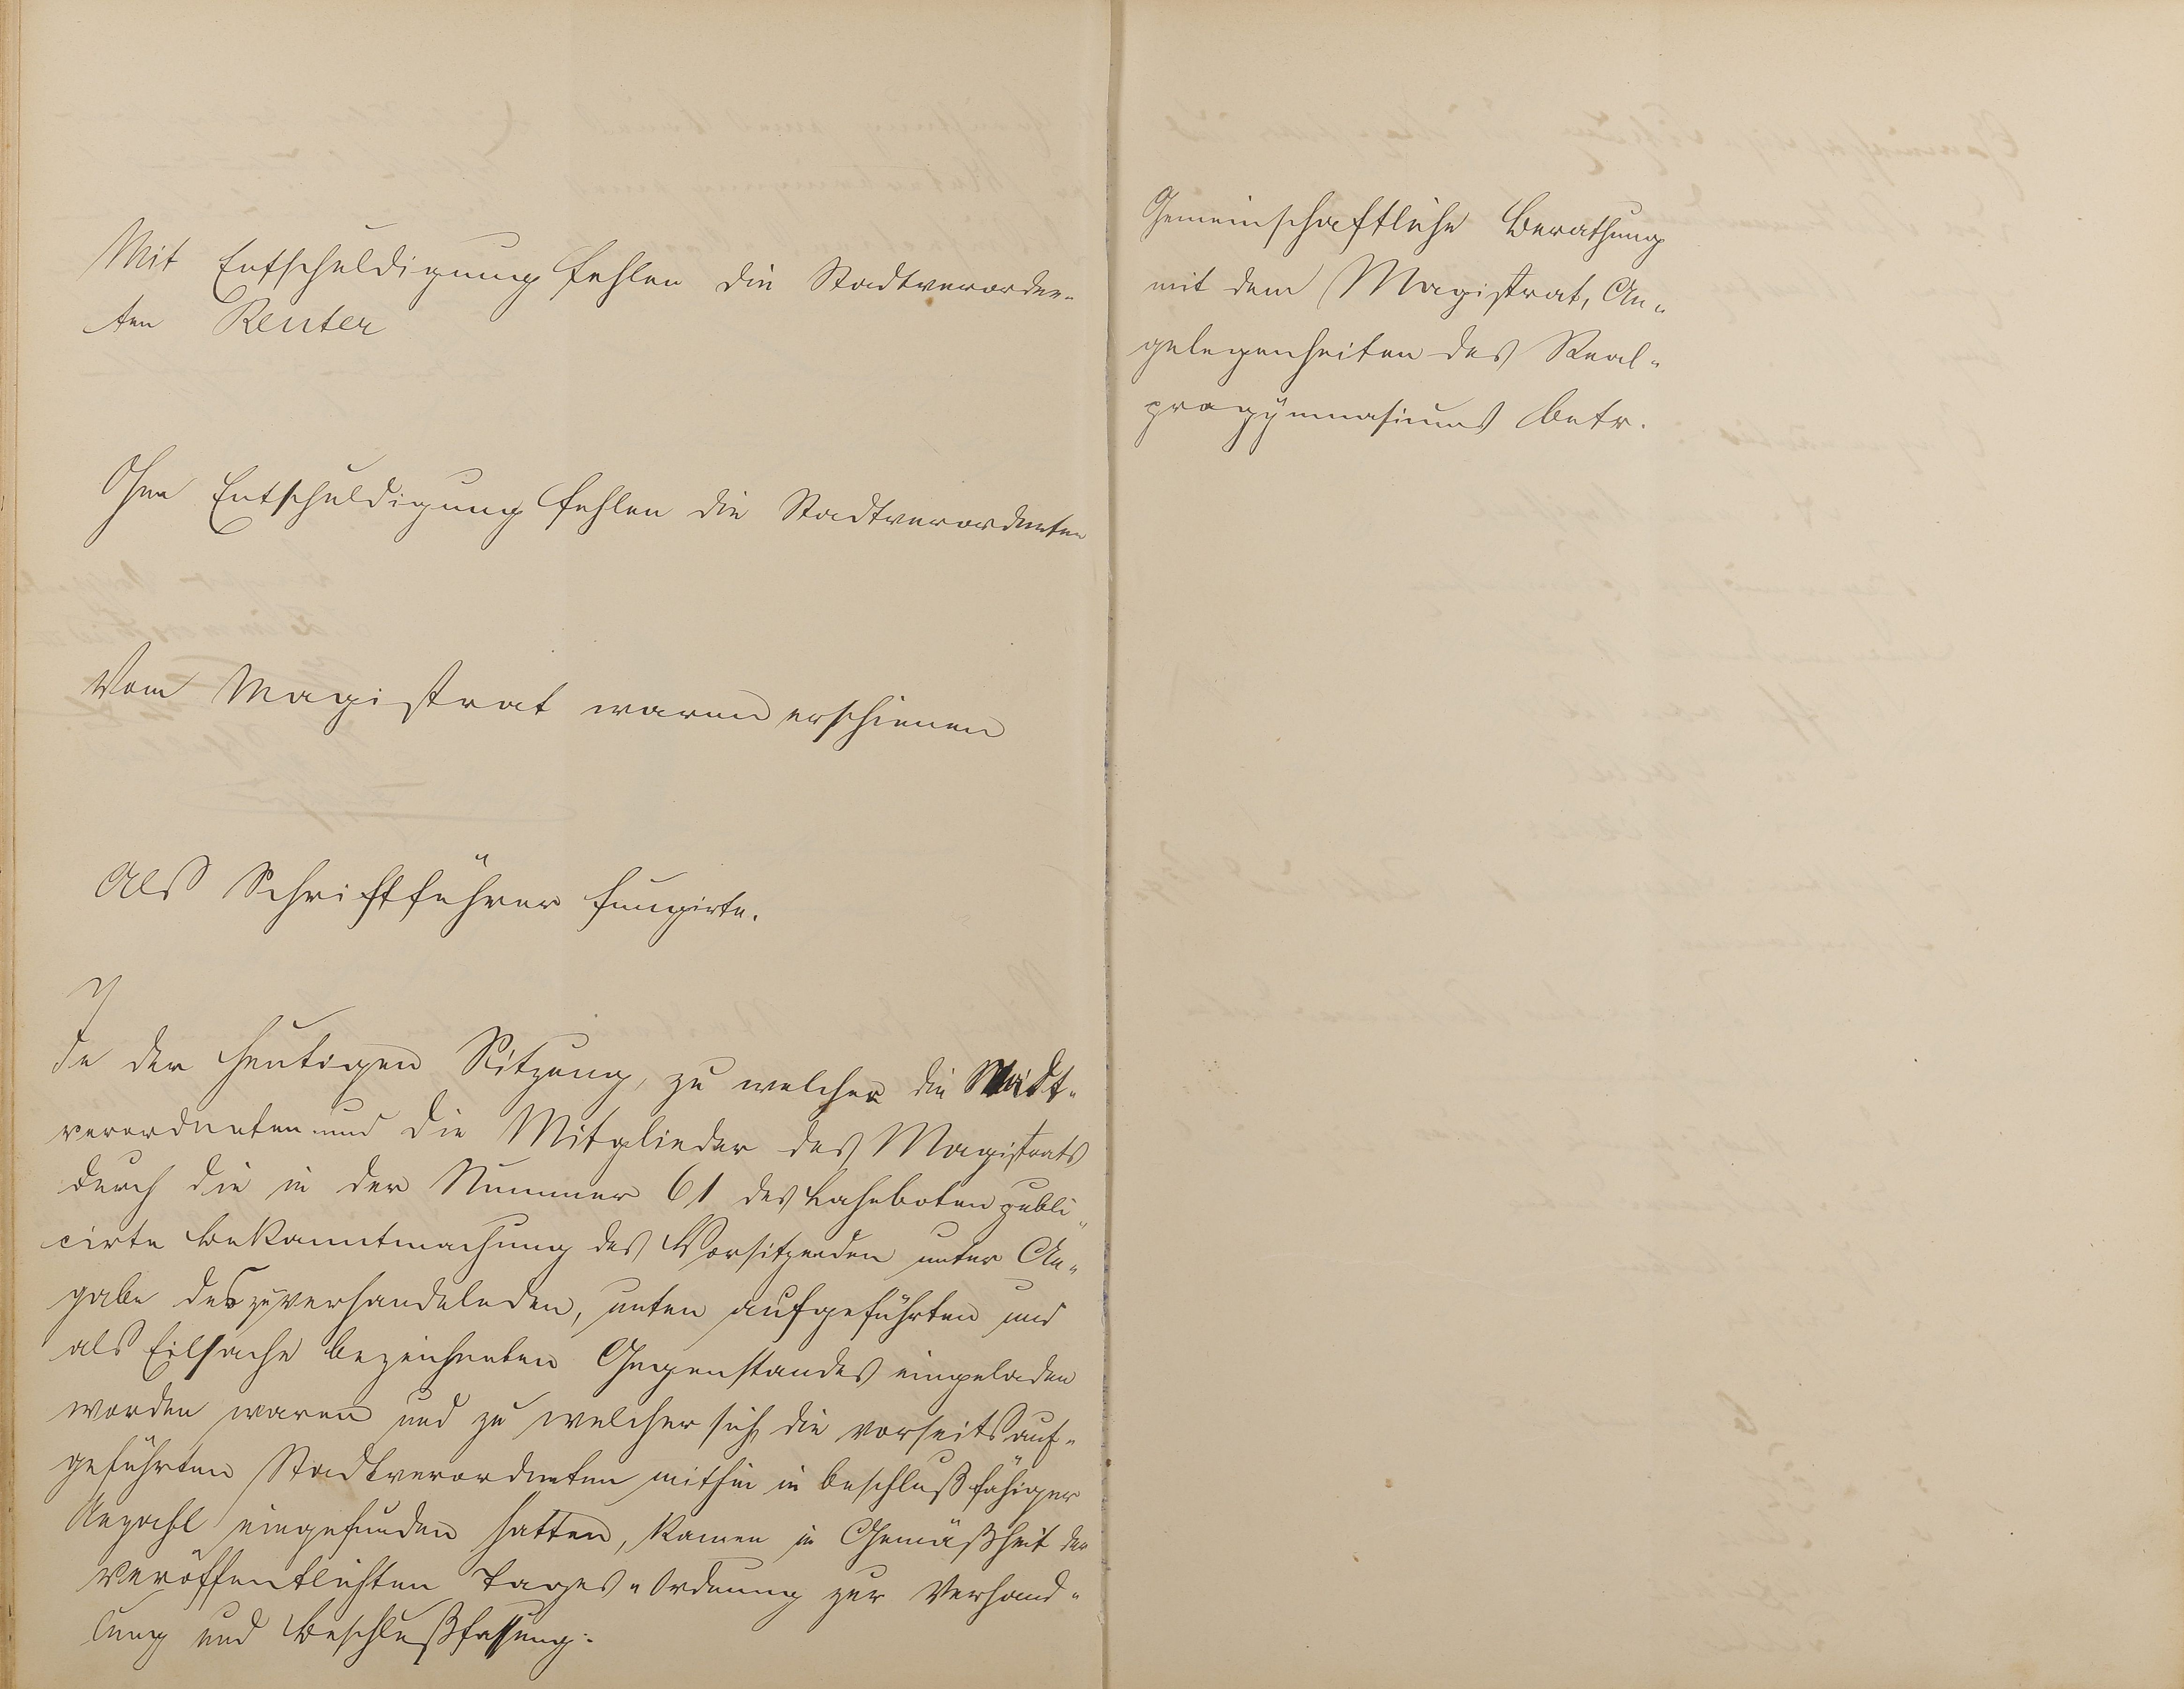 Mit Entschuldigung fehlen die Stadtverordne-
ten Reuter
Ohne Entschuldigung fehlen die Stadtverordneten
Vom Magistrat waren erschienen
Als Schriftführer fungirte.
In der heutigen Sitzung, zu welcher die Stadt-
verordneten und die Mitglieder des Magistrats
durch die in der Nummer 61 des Lahnboten publi-
cirte Bekanntmachung des Vorsitzenden unter An-
gabe des zu verhandelnden, unten aufgeführten und
als Eilsache bezeichneten Gegenstandes eingeladen
worden waren und zu welcher sich die vorseits auf-
geführten Stadtverordneten mithin in beschlußfähiger
Anzahl eingefunden hatten, kamen in Gemäßheit der
veröffentlichten Tages-Ordnung zur Verhand-
lung und Beschlußfassung:
Gemeinschaftliche Berathung
mit dem Magistrat, An-
gelegenheiten des Real-
progymnasiums betr.